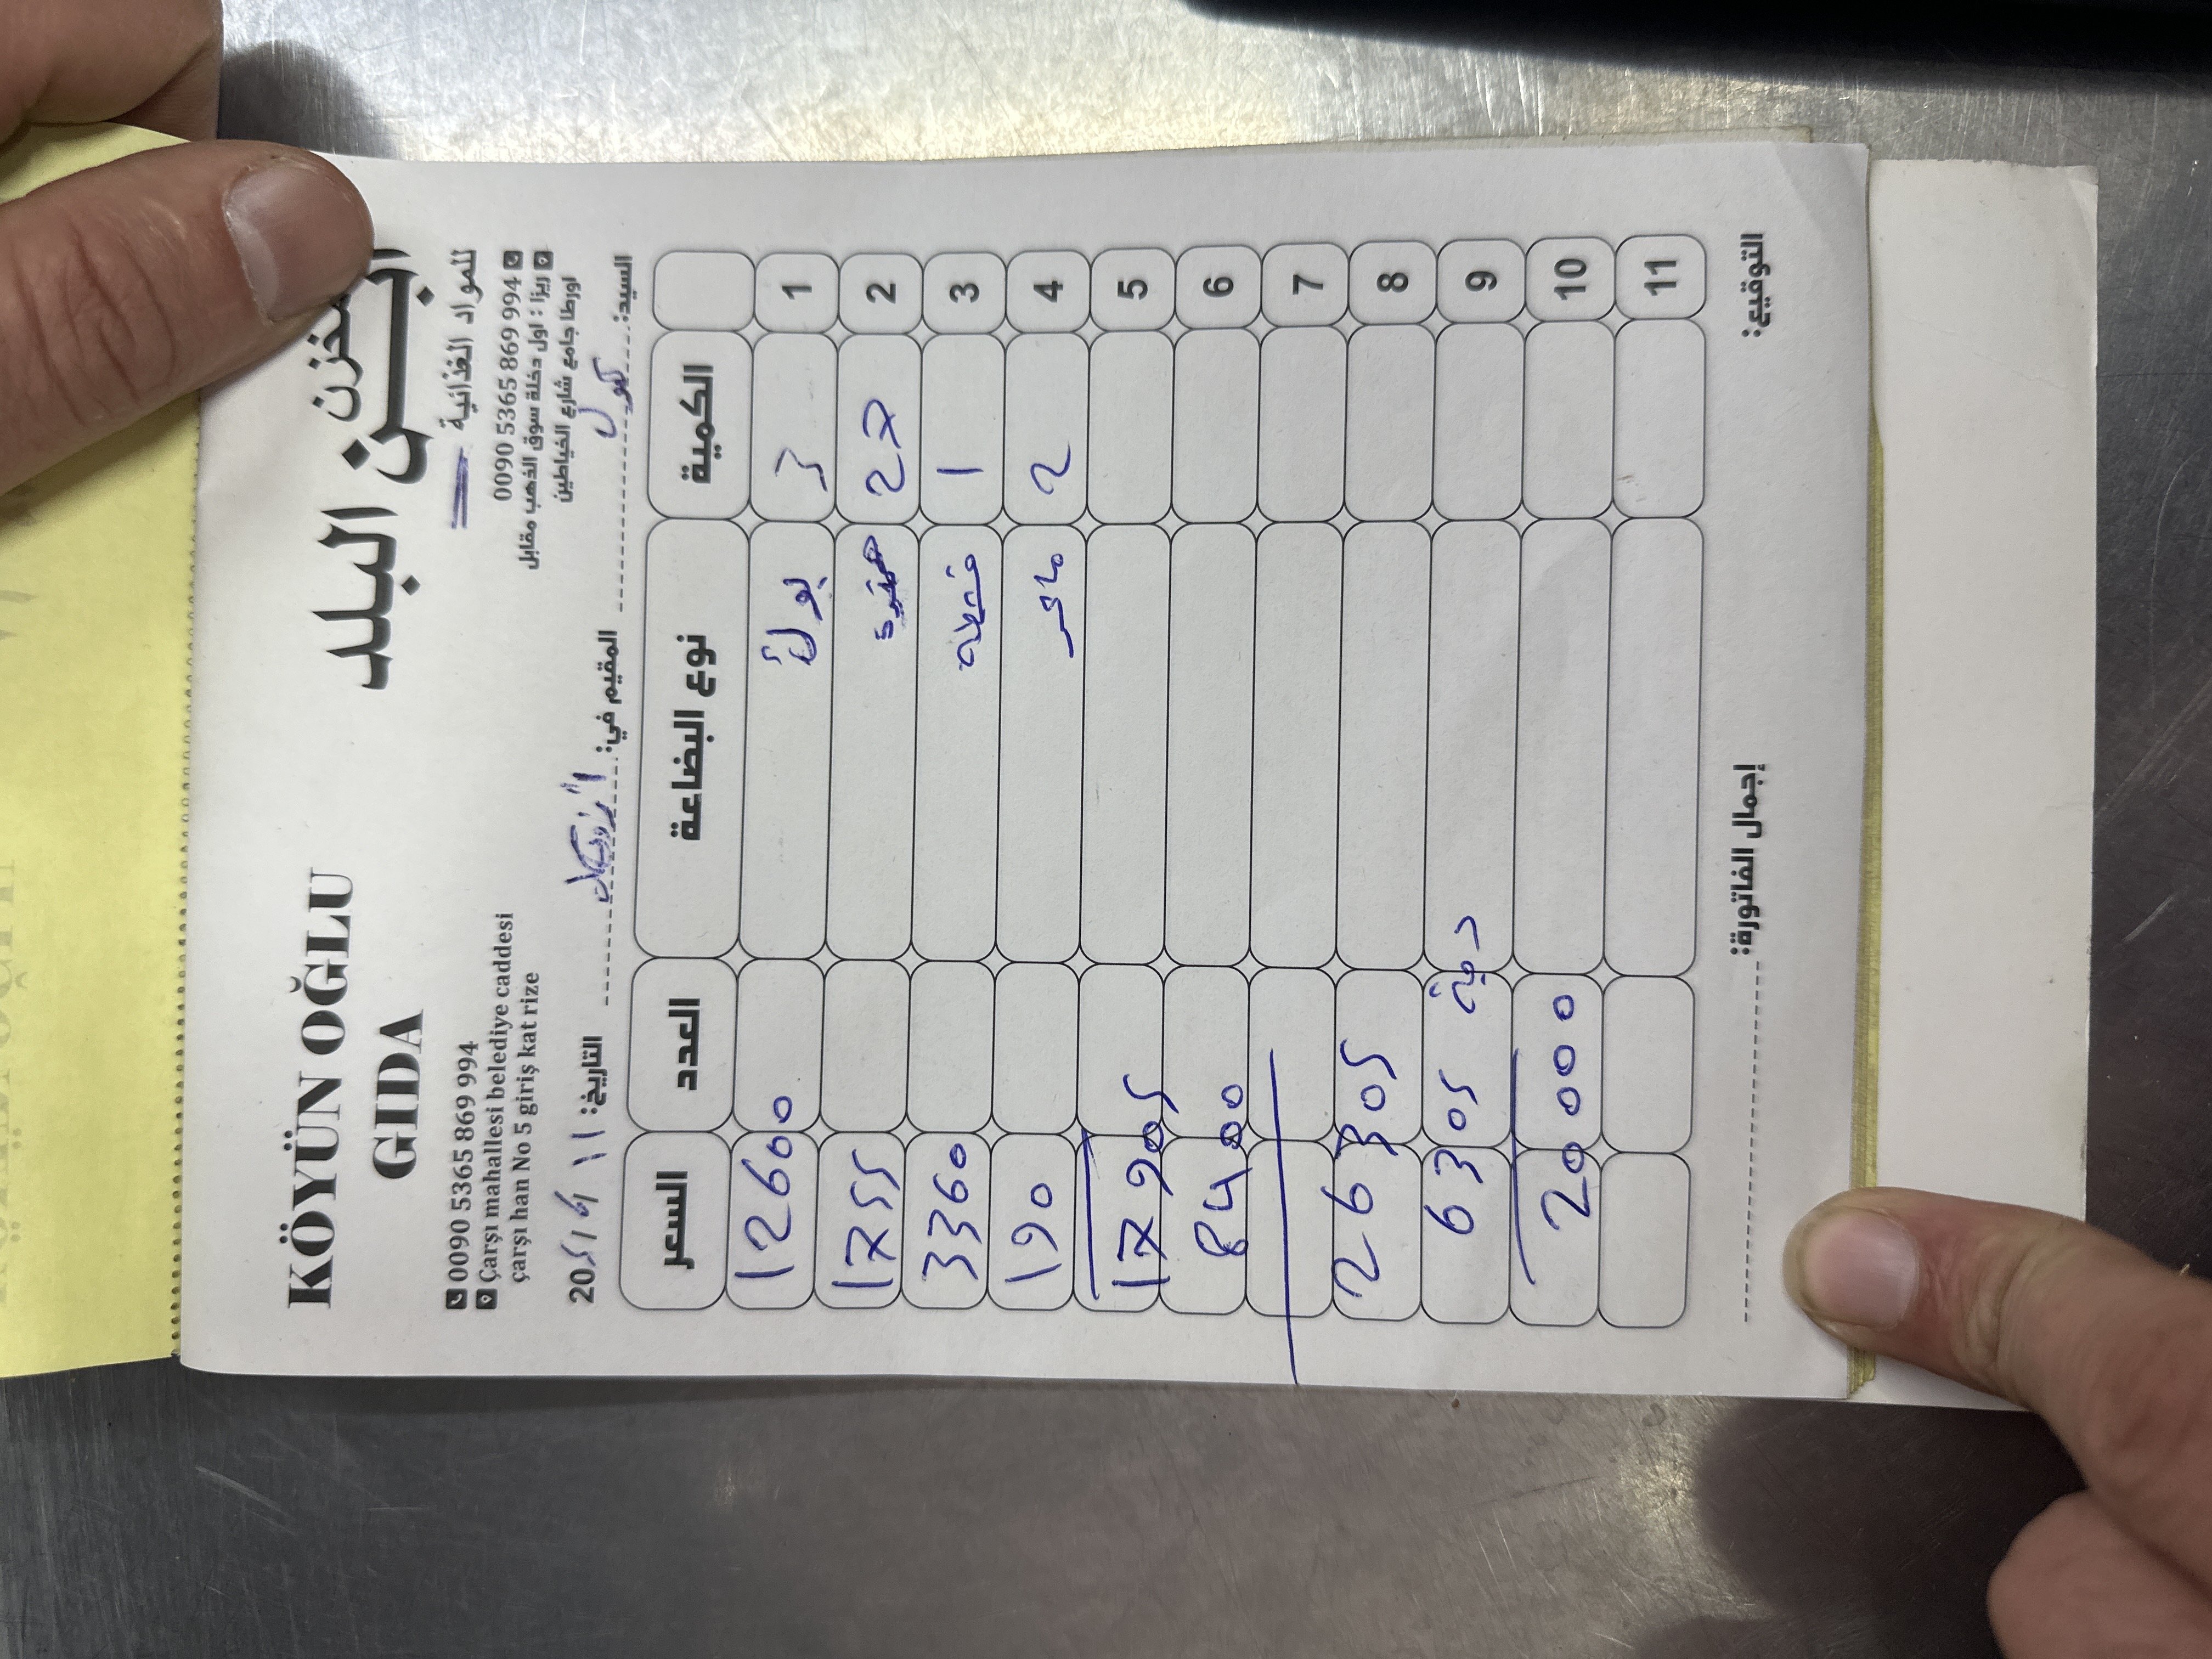 KÖYÜN OĞLU
GIDA
البلد
للمواد الغذائية
0090 5365 869 994
Çarşı mahallesi belediye caddesi
çarşı han No 5 giriş kat rize
0090 5365 869 994
ريزا : اول دخلة سوق الذهب مقابل
اورطا جامع شارع الخياطين
السيد: المقيم في: التاريخ: 11 / 20
الكمية نوع البضاعة العدد السعر
1 3 1260
2 27 1755
3 1 قشطة 3360
4 2 190
5 17905
6 8400
7
8 26305
9 6305
10 20000
11
التوقيع: إجمال الفاتورة: